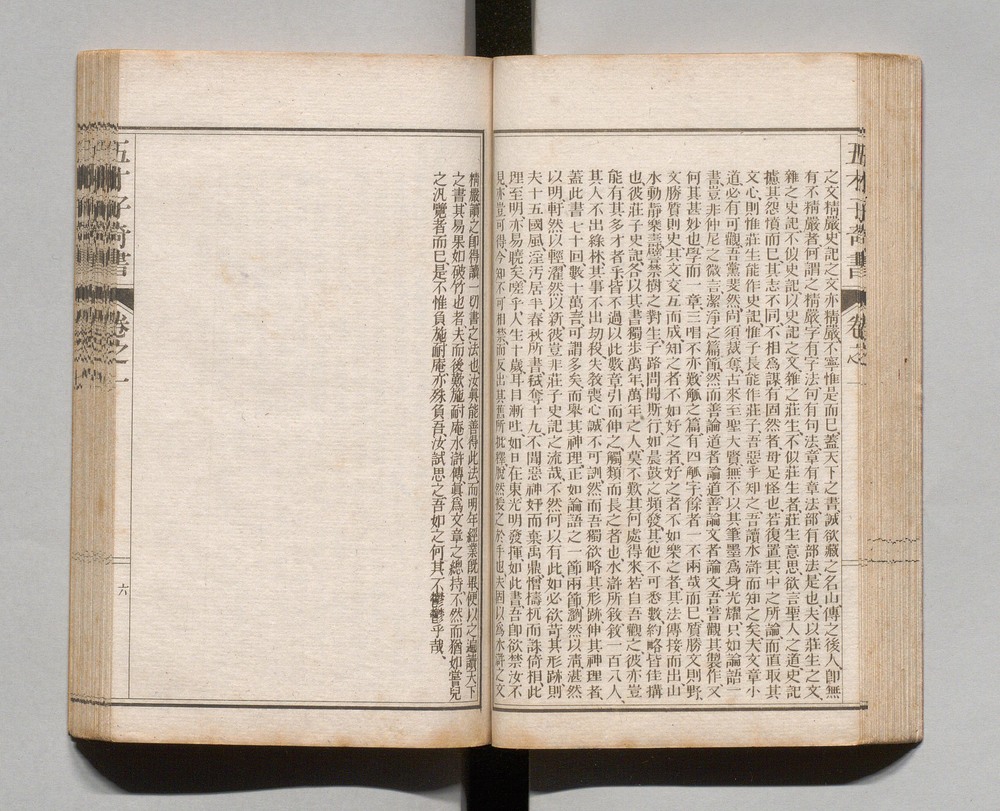 之文精嚴史記之文亦精嚴不寧惟是而巳蓋天下之書誠欲藏之名山傳之後人卽無
有不精嚴者何謂之精嚴字有字法句有句法章有章法部有部法是也夫以莊生之文
雜之史記不似史記以史記之文雜之莊生不似莊生者莊生意思欲言聖人之道史記
攄其怨憤而巳其志不同不相爲謀有固然者毋足怪也若復置其中之所論而直取其
文心則惟莊生能作史記惟子長能作莊子吾惡乎知之吾讀水滸而知之矣夫文章小
道必有可觀吾黨斐然尙須裁奪古來至聖大賢無不以其筆墨爲身光耀只如論語一
書豈非仲尼之微言潔淨之篇節然而善論道者論道善論文者論文吾嘗觀其製作又
何其甚妙也學而一章三唱不亦歎觚之篇有四觚字餘者一不兩哉而巳質勝文則野
文勝質則史其文交互而成知之者不如好之者好之者不如樂之者其法傳接而出山
水動靜樂壽譬禁樹之對生子路問聞斯行如晨鼓之頻發其他不可悉數約略皆佳搆
也彼莊子史記各以其書獨步萬年萬年之人莫不歎其何處得來若自吾觀之彼亦豈
能有其多才者乎皆不過以此數章引而伸之觸類而長之者也水滸所敘敘一百八人
其人不出綠林其事不出劫殺失敎喪心誠不可訓然而吾獨欲略其形跡伸其神理者
蓋此書七十回數十萬言可謂多矣而舉其神理正如論語之一節兩節瀏然以淸湛然
以明軒然以輕濯然以新彼豈非莊子史記之流哉不然何以有此如必欲苛其形跡則
夫十五國風淫汚居半春秋所書弑奪十九不聞惡神奸而棄禹鼎憎檮杌而誅倚相此
理至明亦易曉矣嗟乎人生十歲耳目漸吐如日在東光明發揮如此書吾卽欲禁汝不
見亦豈可得今知不可相禁而反出其舊所批釋脫然授之於手也夫固以爲水滸之文
精嚴讀之卽得讀一切書之法也汝眞能善得此法而明年經業旣畢便以之遍讀天下
之書其易果如破竹也者夫而後歎施耐庵水滸傳眞爲文章之總持不然而猶如嘗兒
之汎覽者而巳是不惟負施耐庵亦殊負吾汝試思之吾如之何其不鬱鬱乎哉
五才子奇書
卷之一
六